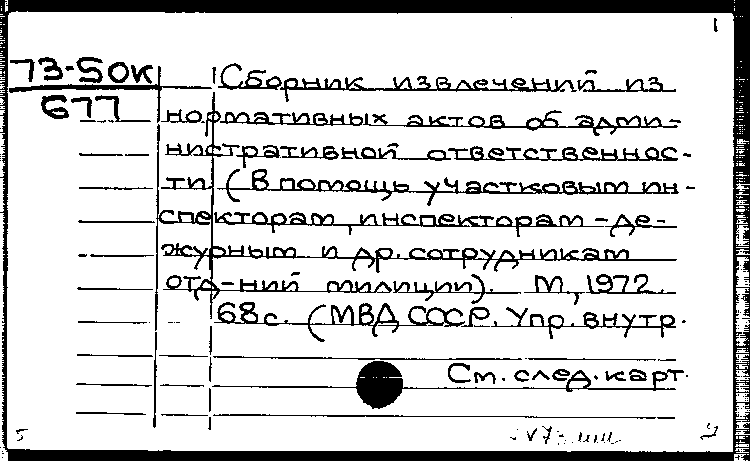 1
73-50к
677
Сборник извлечений из
нормативных актов об адми-
нистративной ответственнос-
ти (В помощь участковым ин-
спекторам, инспекторам-де-
журным и др. сотрудникам
отд-ний милиции). М., 1972.
68с. (МВД СССР. Упр. внутр.
См. след. карт.
5